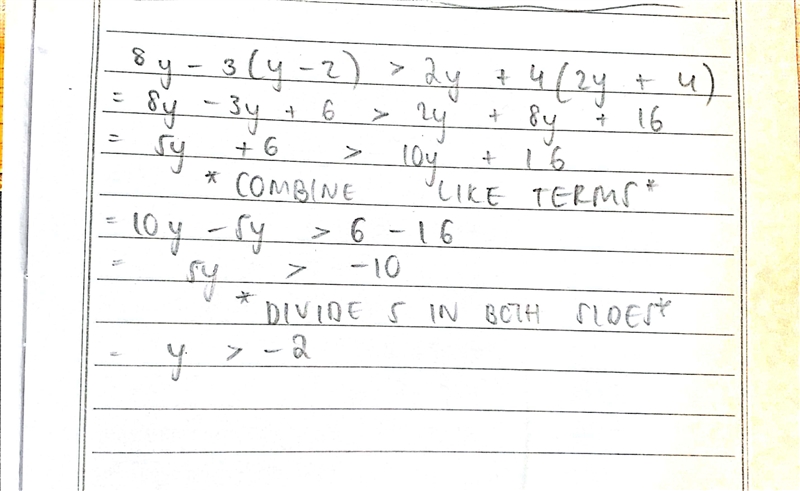 8y - 3(y - 2) > 2y + 4(2y + 4)
= 8y - 3y + 6 > 2y + 8y + 16
= 5y + 6 > 10y + 16
* COMBINE LIKE TERMS *
= 10y - 5y > 6 - 16
= 5y > -10
* DIVIDE 5 IN BOTH SIDES *
= y > -2